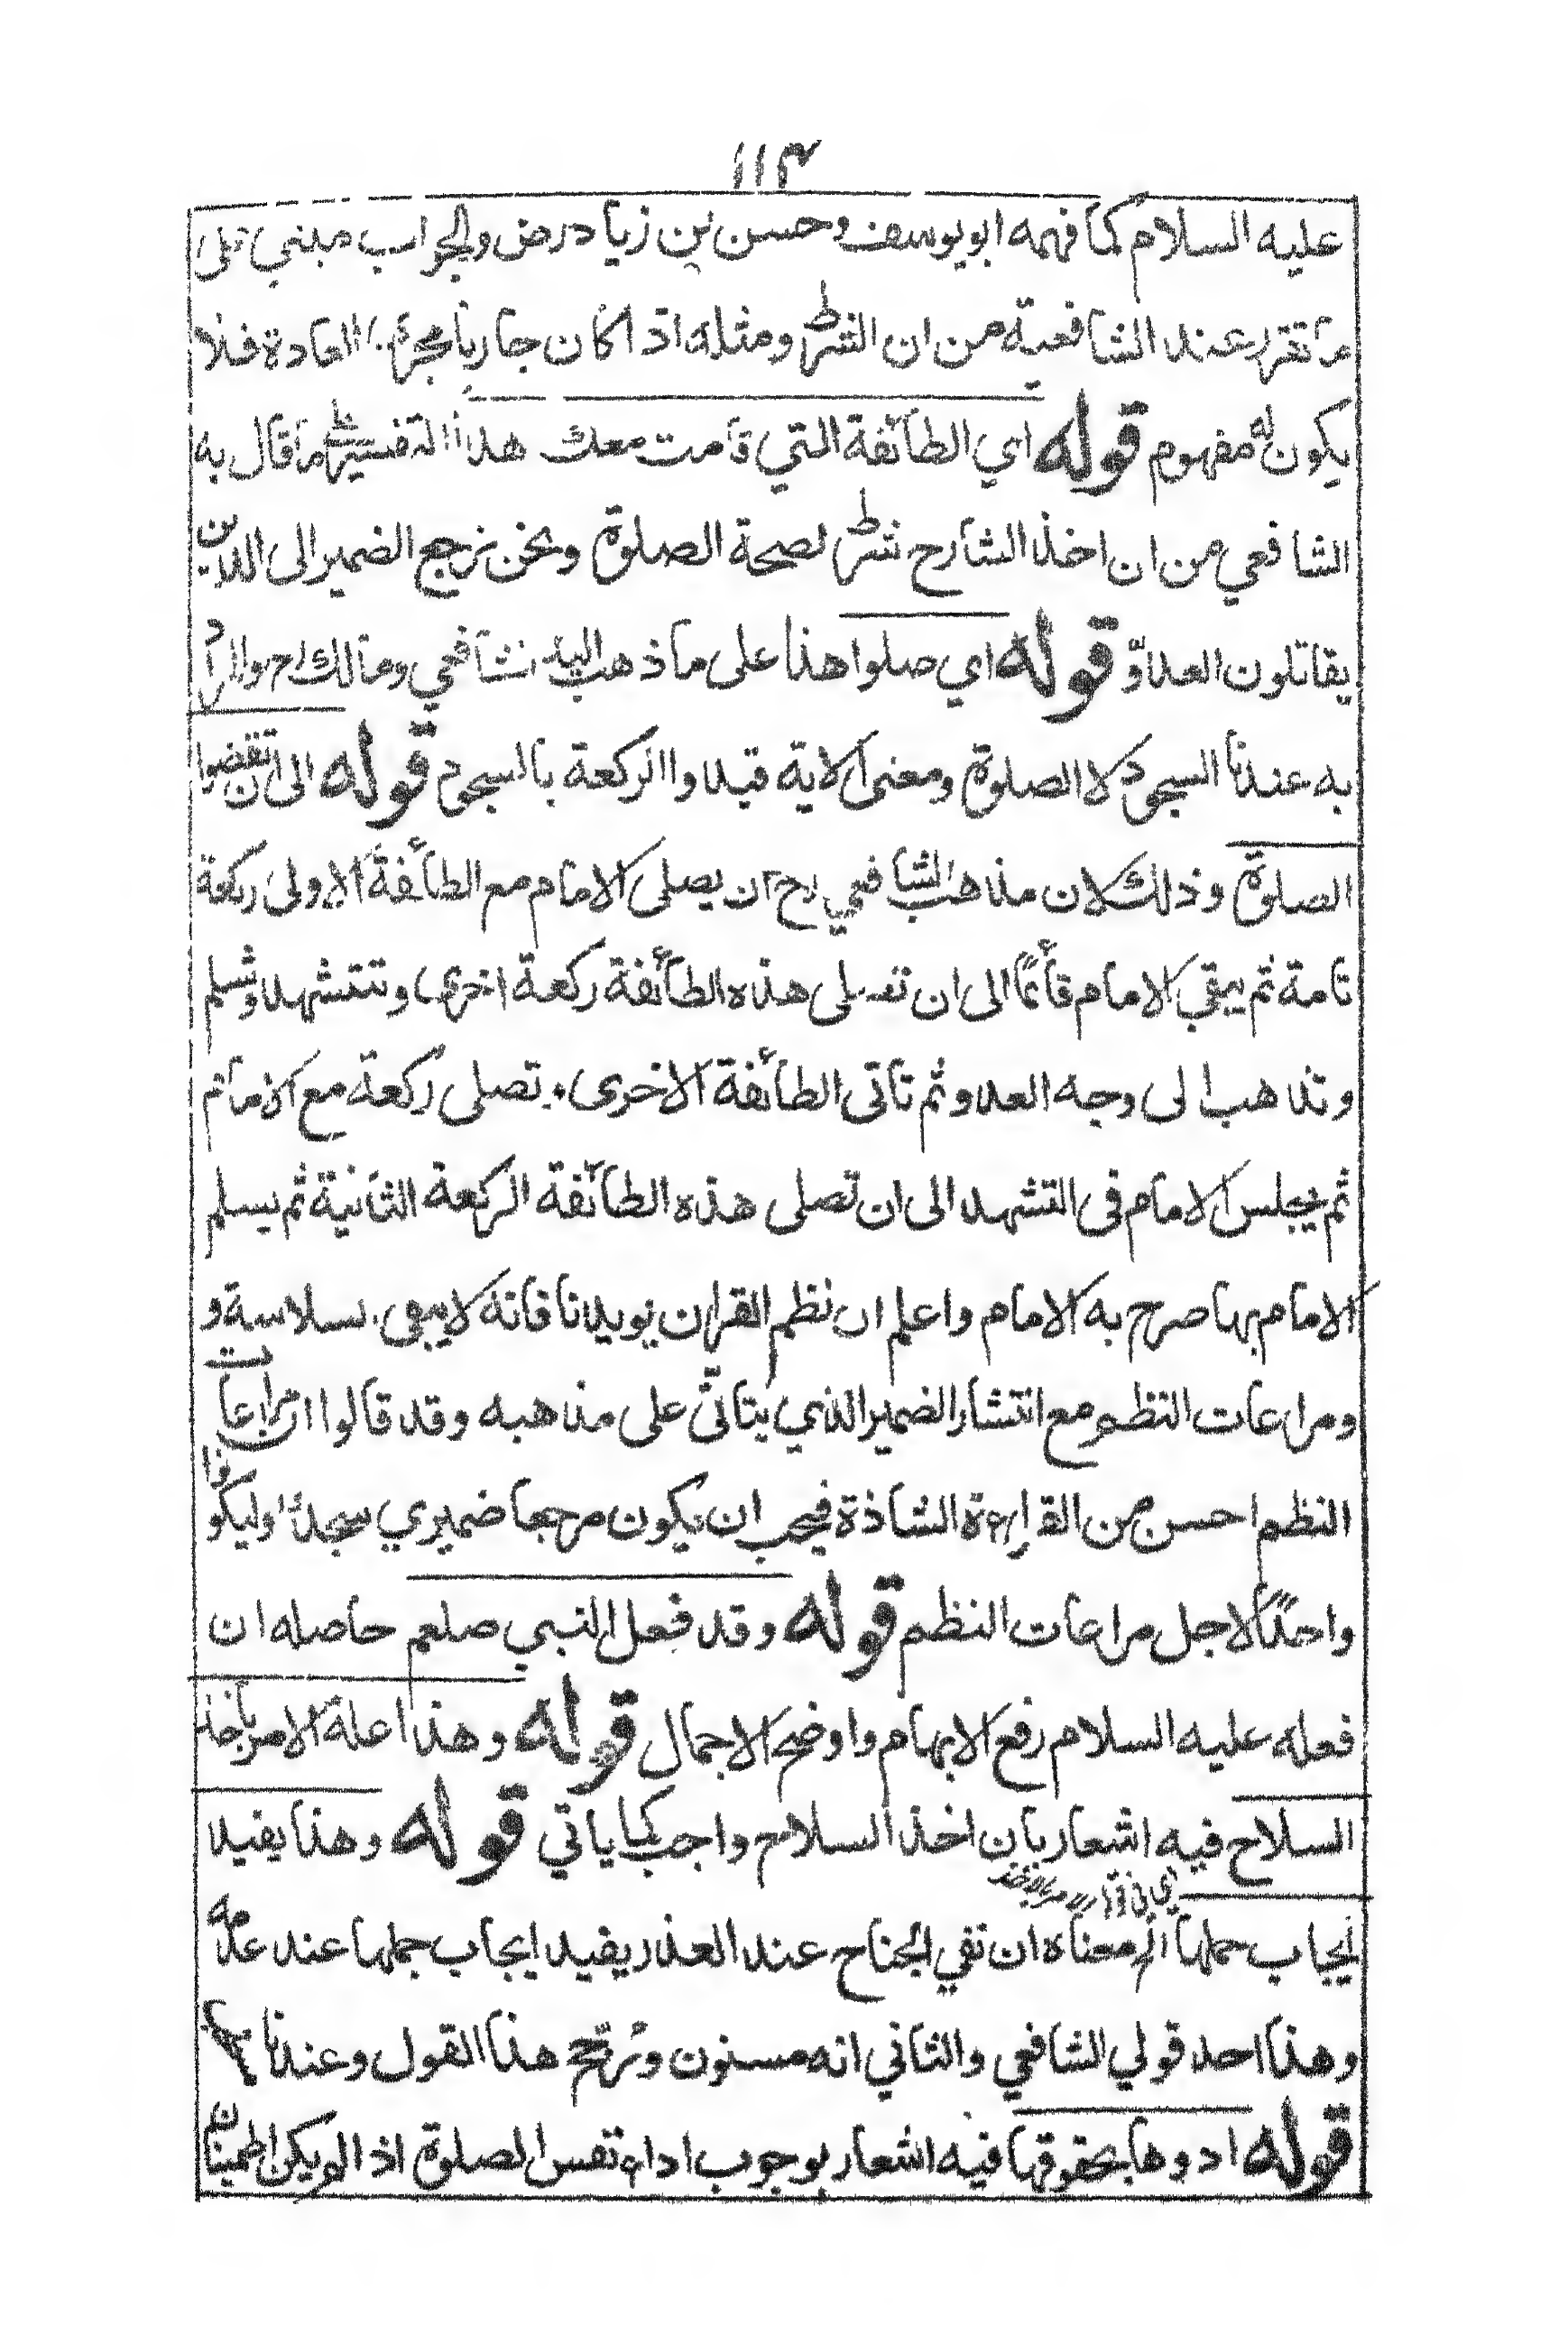 ١١٣
عليه السلام كما فهمه ابويوسف وحسن بن زياد رض والجواب مبني على
ما تقرر عند الشافعية من ان الشرط ومثله اذا كان جاريا مجرى العادة فلا
يكون له مفهوم قوله اي الطائفة التي قامت معك هذا التفسير على ما قال به
الشافعي من ان اخذ الشارح شرط لصحة الصلوة ونحن نرجع الضمير الى الذين
يقاتلون العدو قوله اي صلوا هذا على ما ذهب اليه الشافعي ومالك رح والمراد
به عندنا السجود لا الصلوة ومعنى الاية قيدوا الركعة بالسجود قوله الى ان تقضوا
الصلوة وذلك لان مذهب الشافعي رح ان يصلى الامام مع الطائفة الاولى ركعة
تامة ثم يبقى الامام قائما الى ان تصلى هذه الطائفة ركعة اخرى وتتشهد وتسلم
وتذهب الى وجه العدو ثم تأتى الطائفة الاخرى وتصلى ركعة مع الامام
ثم يجلس الامام فى التشهد الى ان تصلى هذه الطائفة الركعة الثانية ثم يسلم
الامام بها صرح به الامام واعلم ان نظم القران يويدنا فانه لا يبقى سلاسة و
ومراعات النظم مع انتشار الضمير الذي يتاتى على مذهبه وقد قالوا ان مراعات
النظم احسن من القراءة الشاذة فيجب ان يكون مرجعا ضميري سجدوا وليكونوا
واحدًا لاجل مراعات النظم قوله وقد فعل النبي صلعم حاصله ان
فعله عليه السلام رفع الابهام واوضح الاجمال قوله وهذا علة الامر باخذ
السلاح فيه اشعار بان اخذ السلاح واجب كما ياتي قوله وهذا يفيد
ايجاب حملها الخ معناه ان نفي الجناح عند العذر يفيد ايجاب حملها عند عدمه
وهذا احد قولي الشافعي والثاني انه مسنون وترجح هذا القول وعندنا
قوله ادوها بحقوقها فيه اشعار بوجوب اداء نفس الصلوة اذا لم يكن اطمينان